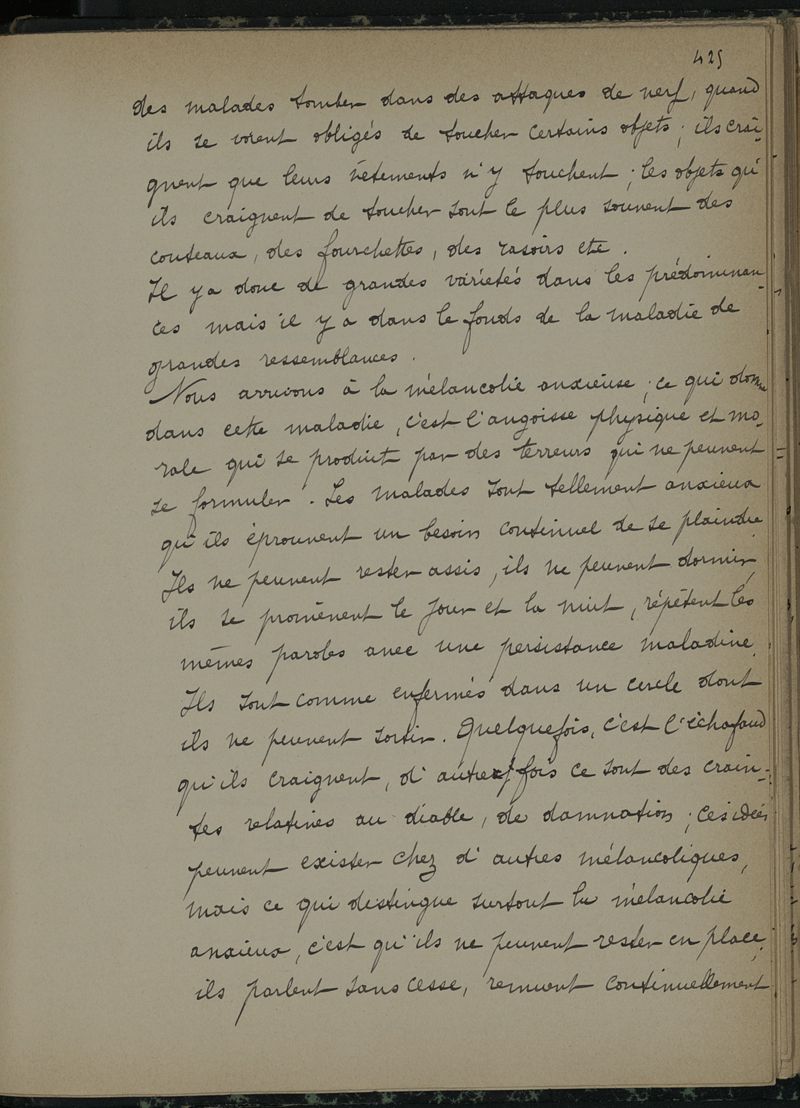 425
des malades tomber dans des attaques de nerf, quand
ils se voient obligés de toucher certains objets ; ils crai-
gnent que leurs vêtements n'y touchent ; les objets qu'
ils craignent de toucher sont le plus souvent des
couteaux, des fourchettes, des rasoirs etc.
Il y a donc de grandes variétés dans les prédominan-
ces mais il y a dans le fonds de la maladie de
grandes ressemblances.
Nous arrivons à la mélancolie anxieuse ; ce qui domine
dans cette maladie, c'est l'angoisse physique et mo-
rale qui se produit par des terreurs qui ne peuvent
se formuler. Les malades sont tellement anxieux
qu'ils éprouvent un besoin continuel de se plaindre
Ils ne peuvent rester assis, ils ne peuvent dormir,
ils se promènent le jour et la nuit, répètent les
mêmes paroles avec une persistance maladive.
Ils sont comme enfermés dans un cercle dont
ils ne peuvent sortir. Quelquefois, c'est l'échafaud
qu'ils craignent, d'autres fois ce sont des crain-
tes relatives au diable, de damnation ; ces idées
peuvent exister chez d'autres mélancoliques,
mais ce qui distingue surtout le mélancolie
anxieux, c'est qu'ils ne peuvent rester en place ;
ils parlent sans cesse, remuent continuellement